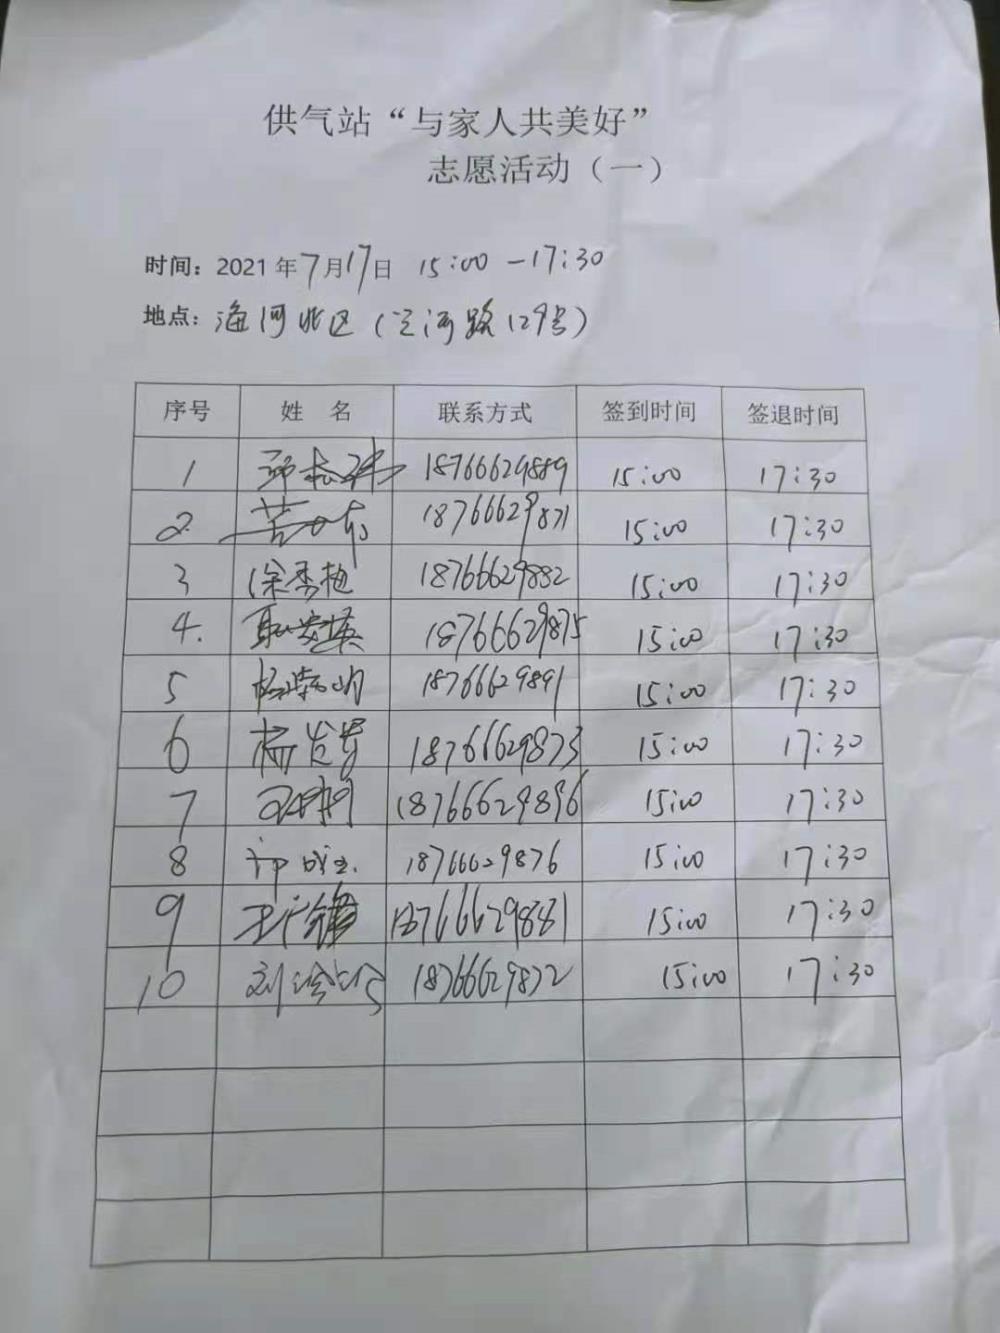 供气站“与家人共美好”
志愿活动（一）
时间：2021年7月17日 15:00-17:30
地点：海河北区（ 河路129号）
序号 姓名 联系方式 签到时间 签退时间
1 18766629889 15:00 17:30
2 18766629871 15:00 17:30
3 徐秀艳 18766629882 15:00 17:30
4. 18766629875 15:00 17:30
5 18766629891 15:00 17:30
6 18766629873 15:00 17:30
7 18766629896 15:00 17:30
8 18766629876 15:00 17:30
9 18766629881 15:00 17:30
10 18766629872 15:00 17:30